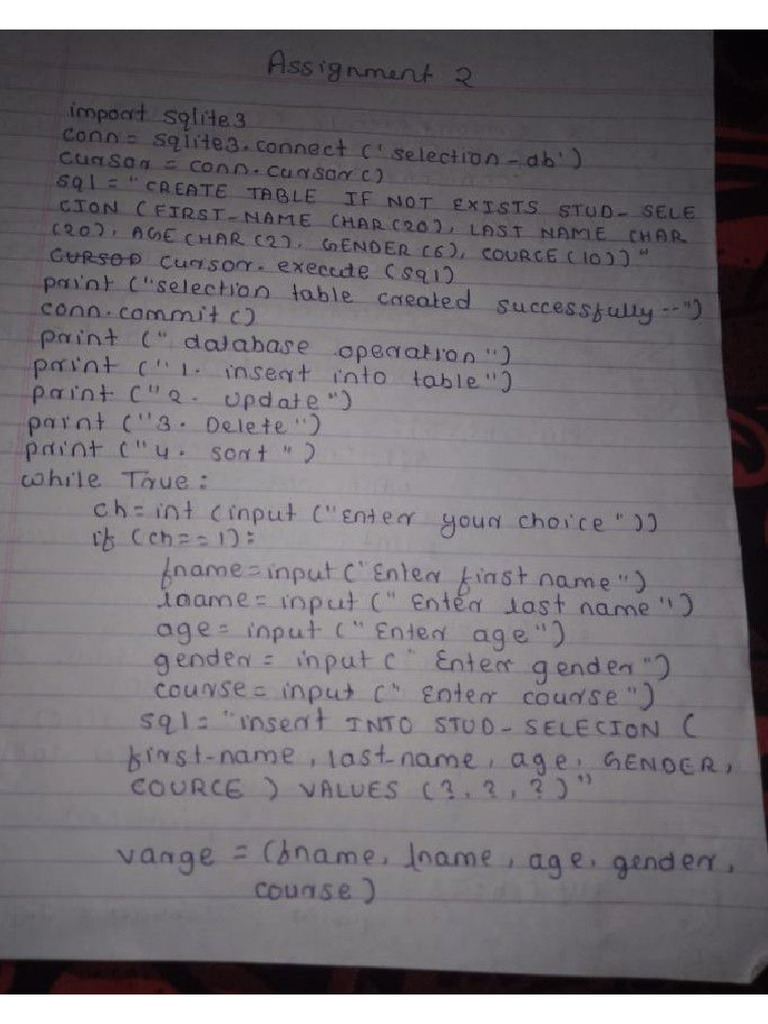 Assignment 2
import sqlite3
conn = sqlite3.connect ('selection-db')
cursor = conn.cursor()
sql = "CREATE TABLE IF NOT EXISTS STUD-SELE
CTION (FIRST-NAME CHAR(20), LAST NAME CHAR
(20), AGE CHAR (2), GENDER (6), COURCE (10))"
cursor.execute (sql)
print ("selection table created successfully --")
conn.commit()
print (" database operation")
print ("1. insert into table")
print ("2. update")
print ("3. Delete")
print ("4. sort ")
while True :
ch = int (input ("Enter your choice"))
if (ch == 1):
fname = input ("Enter first name")
lname = input (" Enter last name")
age = input ("Enter age")
gender = input (" Enter gender")
course = input (" Enter course")
sql = "insert INTO STUD-SELECION (
first-name, last-name, age, GENDER,
COURCE ) VALUES (?, ?, ?)"
varge = (fname, lname, age, gender,
course)